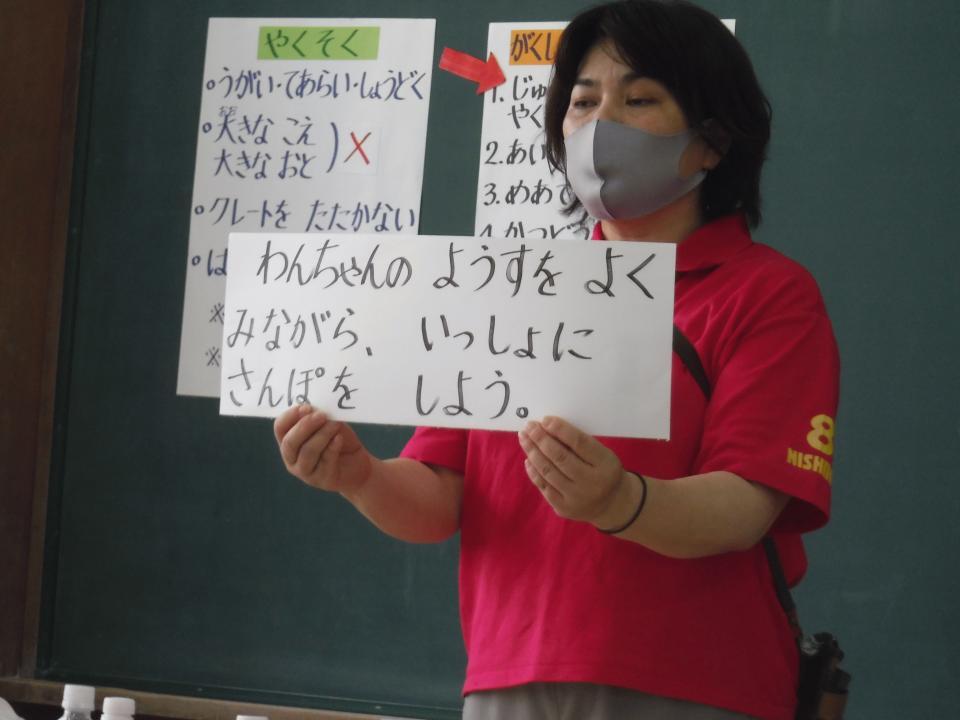 やくそく
・うがい・てあらい・しょうどく
・大きな こえ
大きな おと
×
・クレートを たたかない
・は
※
※
がくし
1. じゅ
やく
2. あい
3. めあて
4. かつどう
わんちゃんの ようすを よく
みながら、 いっしょに
さんぽを しよう。
8
NISHI